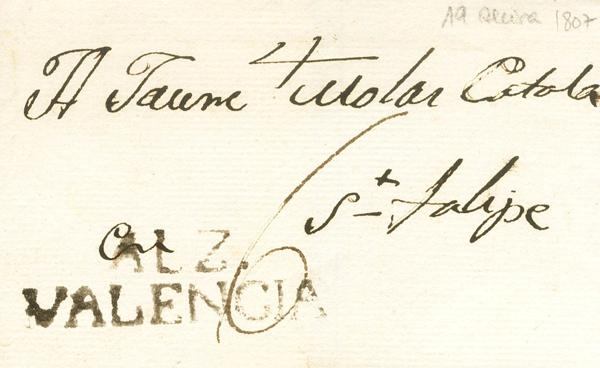 A9 Alcira 1807
A Jaume Molar Catala
Sn Falipe
en
ALZ.
VALENCIA
6